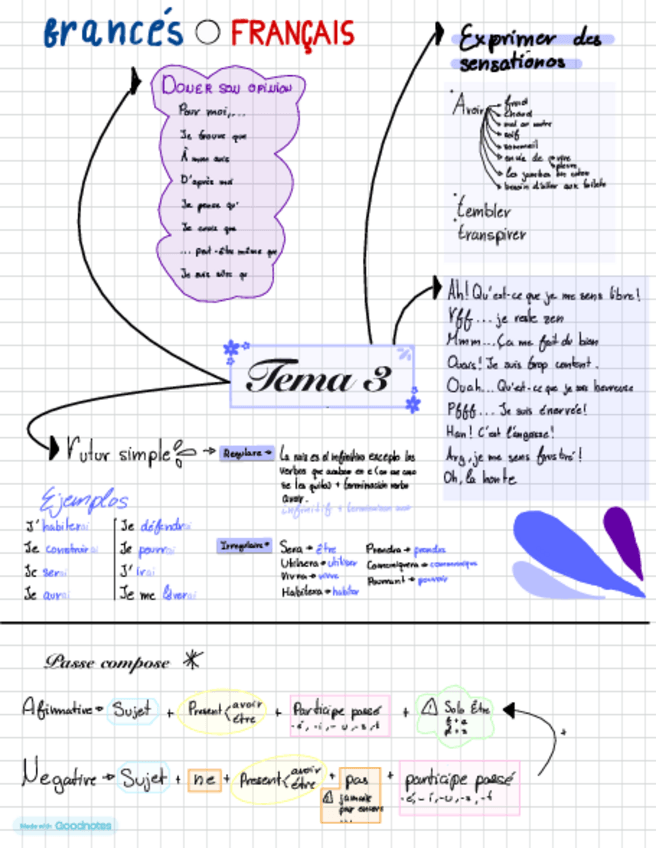 Francés FRANÇAIS
DONER SON OPINION
Pour moi,...
Je trouve que
À mon avis
D'après moi
Je pense qu'
Je crois que
... peut-être même que
Je suis sûre qu
Exprimer des
sensationos
Avoir
froid
chaud
soif
sommeil
envie de
besoin d'aller aux toilette
tembler
transpirer
Ah! Qu'est-ce que je me sens libre!
Uff... je reste zen
Mmm... Ça me fait du bien
Ouais! Je suis trop content.
Ouah... Qu'est-ce que je suis heureuse
Pfff... Je suis énervée!
Han! C'est l'angoisse!
Arg, je me sens frustré!
Oh, la honte
Tema 3
Futur simple → Regulare →
La raiz es el infinitivo excepto los
verbos que acaban en e (en ese caso
se les quita) + terminación verbo
avoir.
infinitif + terminaison avoir
Ejemplos
J'habiterai
Je construirai
Je serai
Je aurai
Je défendrai
Je pourrai
J'irai
Je me lèverai
Irregulare →
Sera → être
Utilisera → utiliser
Vivra → vivre
Habitera → habiter
Prendra → prendre
Pourront → pouvoir
Passe compose *
Afirmative → Sujet + Present avoir être + Participe passé + ⚠ Solo Être
-é, -i, -u, -s, -t
Negative → Sujet + ne + Present avoir être + pas + participe passé
⚠ jamais
...
-é, -i, -u, -s, -t
Made with Goodnotes